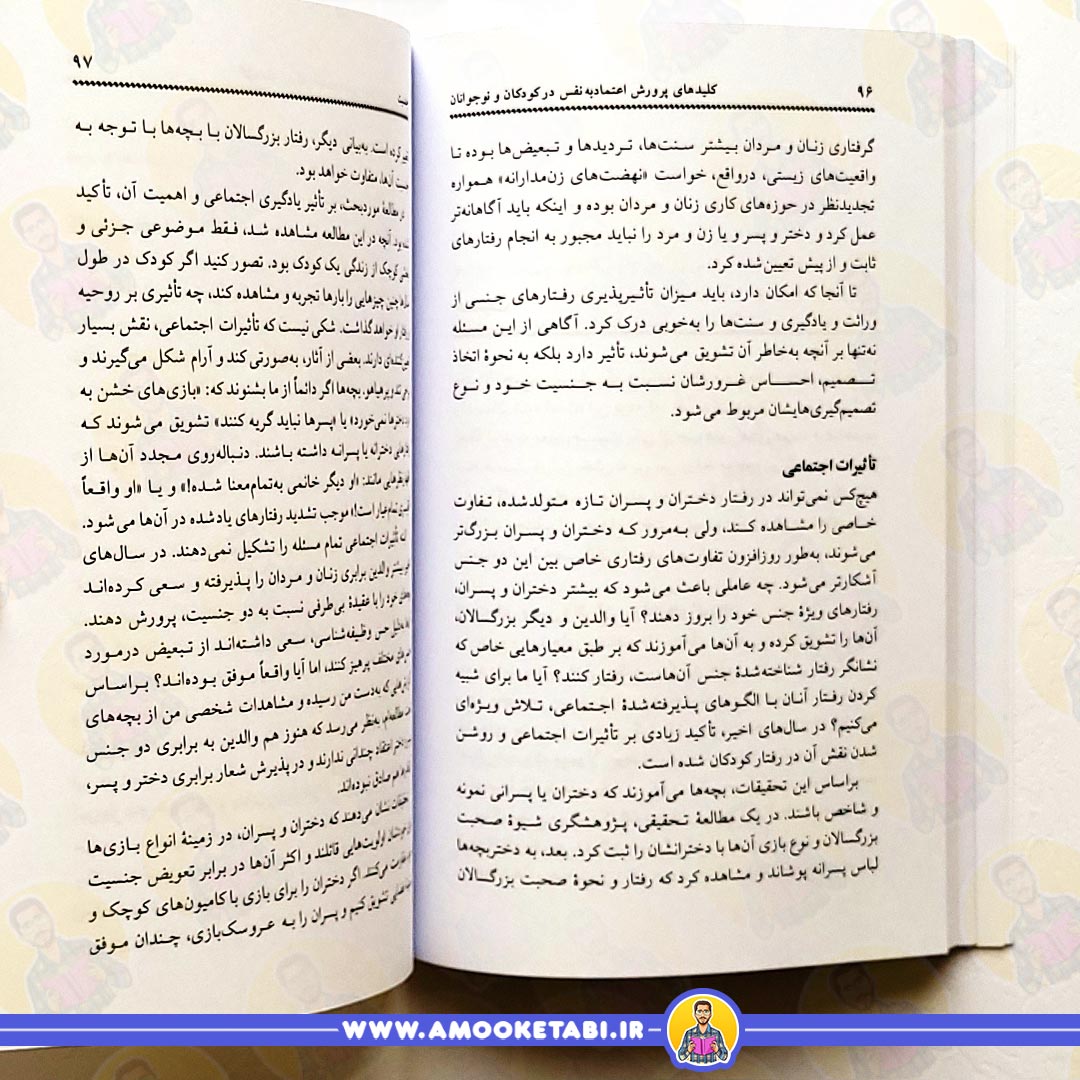 ۹۶
کلیدهای پرورش اعتمادبه‌نفس در کودکان و نوجوانان
گرفتاری زنان و مردان بیشتر سنت‌ها، تردیدها و تبعیض‌ها بوده تا
واقعیت‌های زیستی، درواقع، خواست «نهضت‌های زن‌مدارانه» همواره
تجدیدنظر در حوزه‌های کاری زنان و مردان بوده و اینکه باید آگاهانه‌تر
عمل کرد و دختر و پسر و یا زن و مرد را نباید مجبور به انجام رفتارهای
ثابت و از پیش تعیین‌شده کرد.
تا آنجا که امکان دارد، باید میزان تأثیرپذیری رفتارهای جنسی از
وراثت و یادگیری و سنت‌ها را به‌خوبی درک کرد. آگاهی از این مسئله
نه‌تنها بر آنچه به‌خاطر آن تشویق می‌شوند، تأثیر دارد بلکه به نحوهٔ اتخاذ
تصمیم، احساس غرورشان نسبت به جنسیت خود و نوع
تصمیم‌گیری‌هایشان مربوط می‌شود.
تأثیرات اجتماعی
هیچ‌کس نمی‌تواند در رفتار دختران و پسران تازه متولدشده، تفاوت
خاصی را مشاهده کند، ولی به‌مرور که دختران و پسران بزرگ‌تر
می‌شوند، به‌طور روزافزون تفاوت‌های رفتاری خاص بین این دو جنس
آشکارتر می‌شود. چه عاملی باعث می‌شود که بیشتر دختران و پسران،
رفتارهای ویژهٔ جنس خود را بروز دهند؟ آیا والدین و دیگر بزرگسالان،
آن‌ها را تشویق کرده و به آن‌ها می‌آموزند که بر طبق معیارهایی خاص که
نشانگر رفتار شناخته‌شدهٔ جنس آن‌هاست، رفتار کنند؟ آیا ما برای شبیه
کردن رفتار آنان با الگوهای پذیرفته‌شدهٔ اجتماعی، تلاش ویژه‌ای
می‌کنیم؟ در سال‌های اخیر، تأکید زیادی بر تأثیرات اجتماعی و روشن
شدن نقش آن در رفتار کودکان شده است.
براساس این تحقیقات، بچه‌ها می‌آموزند که دختران یا پسرانی نمونه
و شاخص باشند. در یک مطالعهٔ تحقیقی، پژوهشگری شیوهٔ صحبت
بزرگسالان و نوع بازی آن‌ها با دخترانشان را ثبت کرد. بعد، به دختربچه‌ها
لباس پسرانه پوشاند و مشاهده کرد که رفتار و نحوهٔ صحبت بزرگسالان
۹۷
کرده است. به‌بیانی دیگر، رفتار بزرگسالان با بچه‌ها با توجه به
آن‌ها، متفاوت خواهد بود.
مطالعهٔ موردبحث، بر تأثیر یادگیری اجتماعی و اهمیت آن، تأکید
بود. آنچه در این مطالعه مشاهده شد، فقط موضوعی جزئی و
کوچک از زندگی یک کودک بود. تصور کنید اگر کودک در طول
چنین چیزهایی را بارها تجربه و مشاهده کند، چه تأثیری بر روحیه
او خواهد گذاشت. شکی نیست که تأثیرات اجتماعی، نقش بسیار
دارند. بعضی از آثار، به‌صورتی کند و آرام شکل می‌گیرند و
پرهیاهو. بچه‌ها اگر دائماً از ما بشنوند که: «بازی‌های خشن به
دخترها نمی‌خورد» یا «پسرها نباید گریه کنند» تشویق می‌شوند که
دخترانه یا پسرانه داشته باشند. دنباله‌روی مجدد آن‌ها از
مانند: «او دیگر خانمی به‌تمام‌معنا شده!» و یا «او واقعاً
است!» موجب تشدید رفتارهای یادشده در آن‌ها می‌شود.
تأثیرات اجتماعی تمام مسئله را تشکیل نمی‌دهند. در سال‌های
بیشتر والدین برابری زنان و مردان را پذیرفته و سعی کرده‌اند
خود را با عقیدهٔ بی‌طرفی نسبت به دو جنسیت، پرورش دهند.
حس وظیفه‌شناسی، سعی داشته‌اند از تبعیض درمورد
مختلف پرهیز کنند، اما آیا واقعاً موفق بوده‌اند؟ براساس
که به‌دست من رسیده و مشاهدات شخصی من از بچه‌های
مطالعه‌ام، به‌نظر می‌رسد که هنوز هم والدین به برابری دو جنس
اعتقاد چندانی ندارند و در پذیرش شعار برابری دختر و پسر،
هم صادق نبوده‌اند.
نشان می‌دهند که دختران و پسران، در زمینهٔ انواع بازی‌ها
اولویت‌هایی قائلند و اکثر آن‌ها در برابر تعویض جنسیت
می‌کنند. اگر دختران را برای بازی با کامیون‌های کوچک و
تشویق کنیم و پسران را به عروسک‌بازی، چندان موفق
WWW.AMOOKETABI.IR